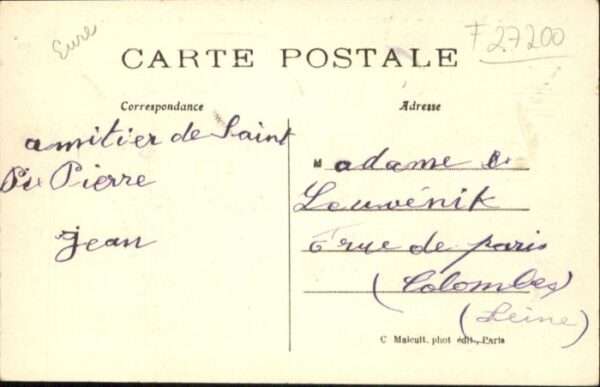 Eure
F27200
CARTE POSTALE
Correspondance
Adresse
amitier de Saint
Pierre
Jean
Madame
Louvénik
6 rue de paris
(Colombes)
(Seine)
C Malcuit. phot édit., Paris